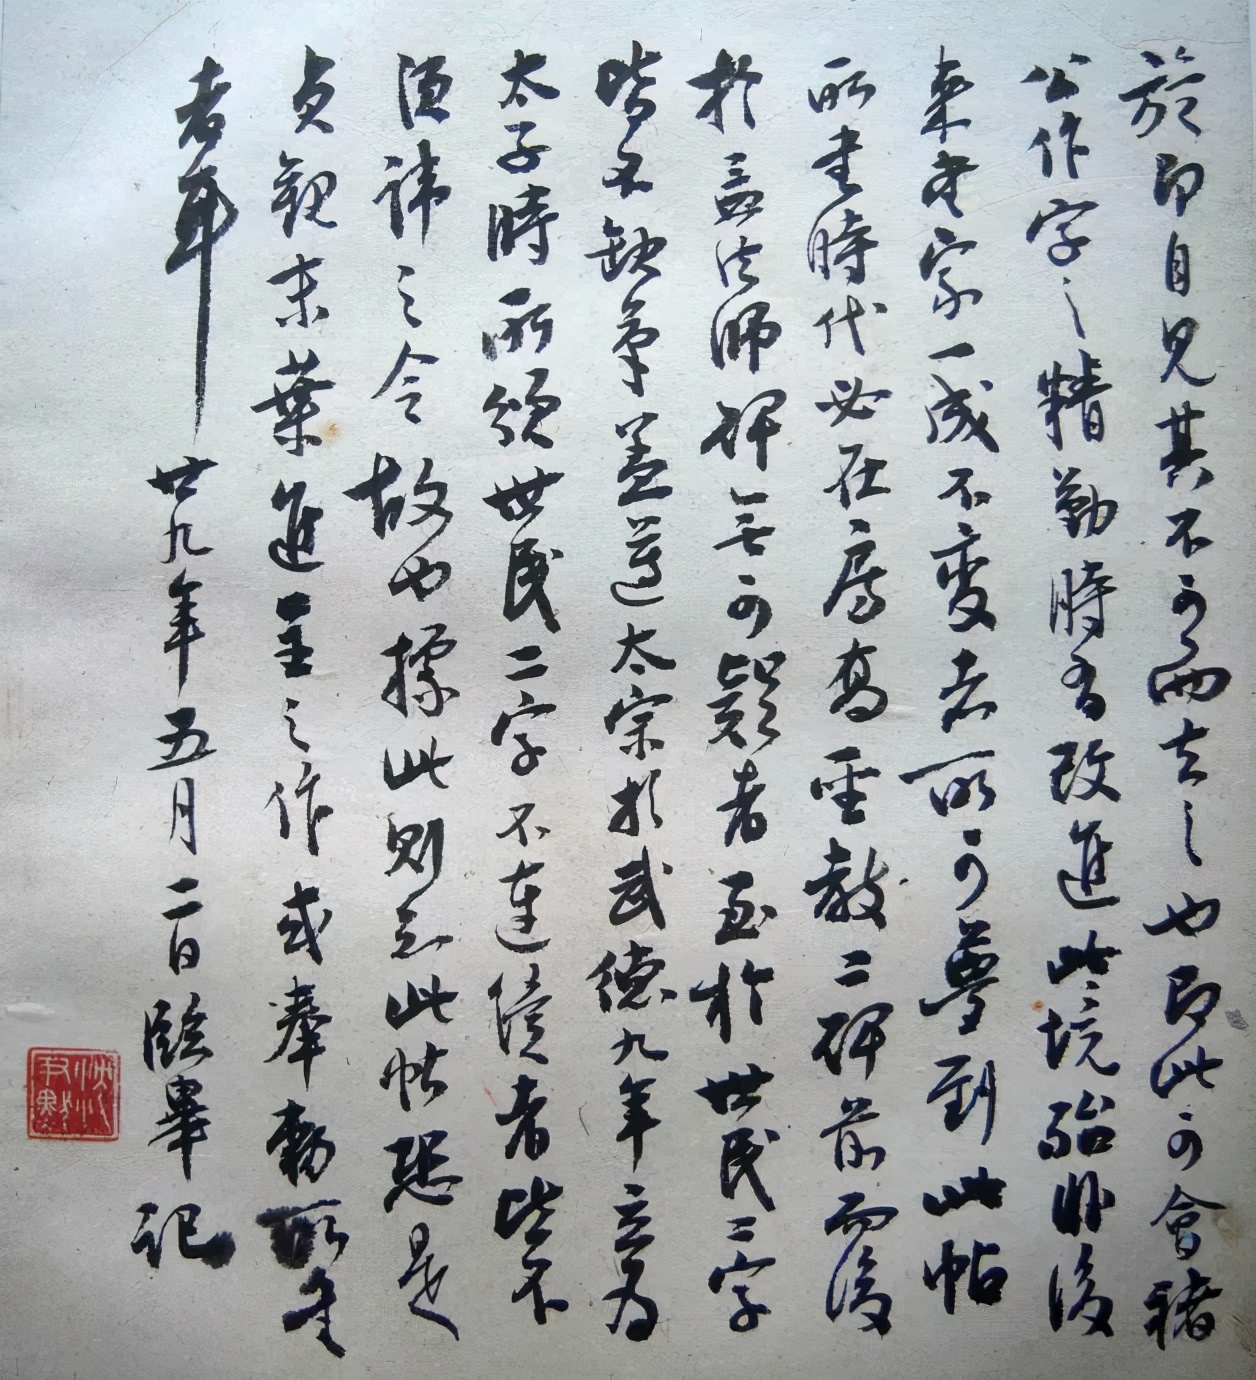 於即自見其不可而去之也即此可會褚
公作字之精勤時有改進此境殆非後
來書家一成不變者所可夢到此帖
所書時代必在房高聖教二碑前而後
於孟法師碑無可疑者至於世民二字
皆不缺筆蓋遵太宗於武德九年立為
太子時所頒世民二字不連續者皆不
須諱之令故也據此則知此帖想是
貞觀末葉進呈之作或奉勅所書
者耳
廿九年五月二日臨畢記